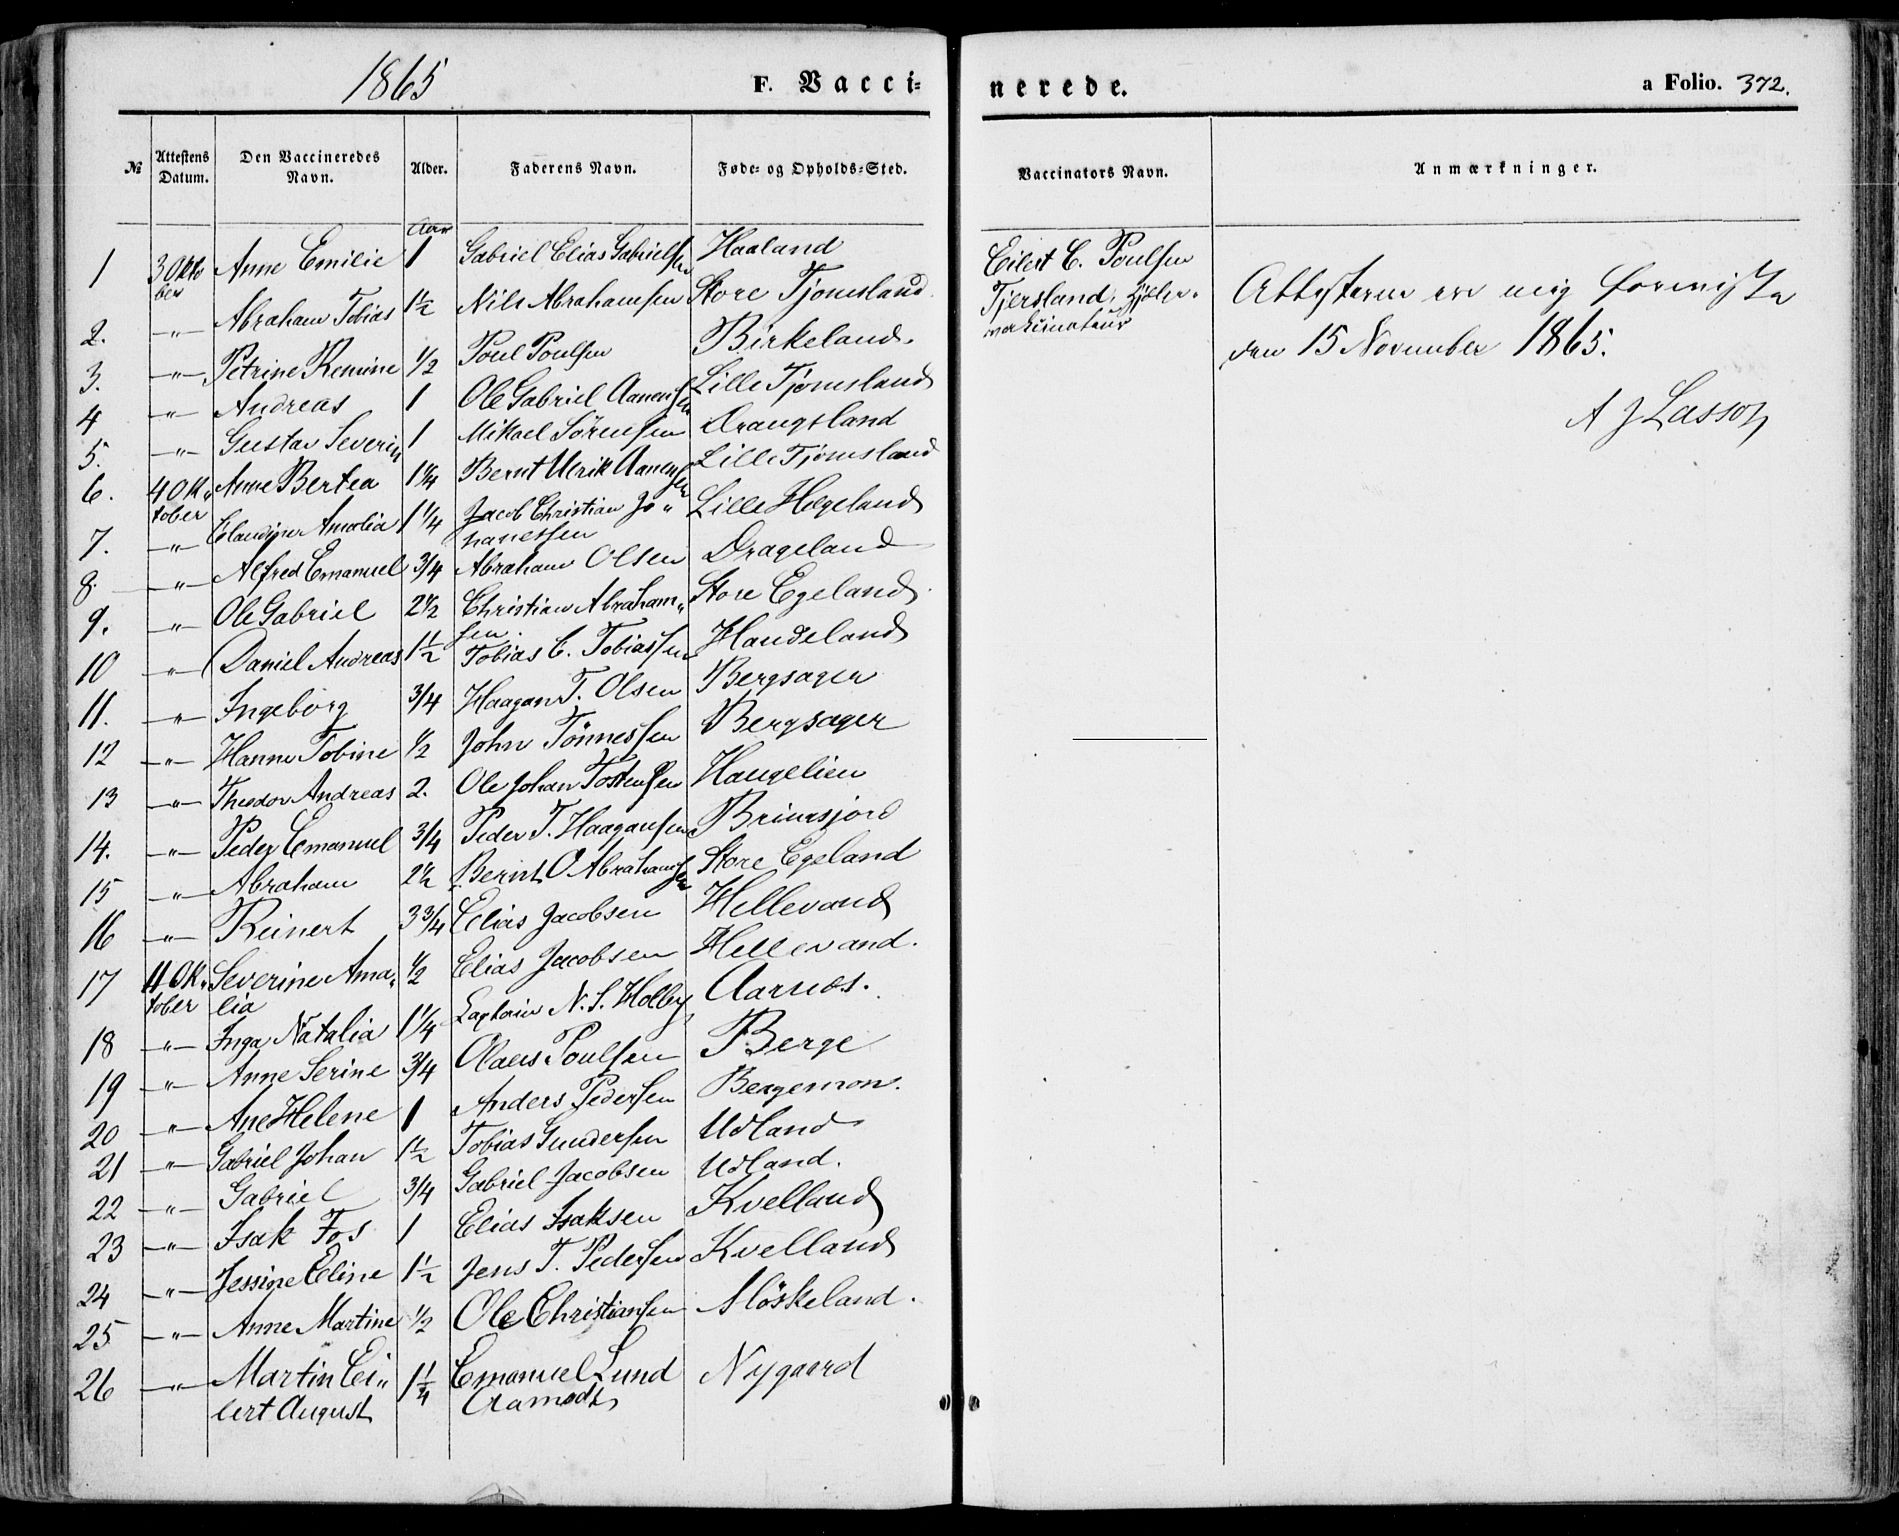 1865 F. Vacci-
№ Attestens Datum. Den Vaccineredes Navn. Alder. Faderens Navn. Føde- og Opholds-Sted.
Aar
1 3 Okto ber Anne Emilie 1 Gabriel Elias Gabrielsen Haaland
2. —"— Abraham Tobias 1½ Nils Abrahamsen Store Tjomsland
3. —"— Petrine Remine ½ Poul Poulsen Birkeland
4 —"— Andreas 1 Ole Gabriel Aanensen Lille Tjomsland
5. —"— Gustav Severin 1 Mikael Sörensen Drangsland
6. 4 Ok- tober Anne Bertea 1¼ Bernt Ulrik Aanensen Lille Tjomsland
7. —"— Claudine Amalia 1¼ Jacob Christian Jo- Lille Hægeland
hanessen
8. —"— Alfred Emanuel ¾ Abraham Olsen Drageland
9. —"— Ole Gabriel 2½ Christian Abraham- Store Egeland
sen.
10 —"— Daniel Andreas 1½ Tobias C. Tobiassen Haudeland
11. —"— Ingeborg ¾ Haagan T. Olsen Bergsager
12 —"— Hanne Tobine ½ John Tönnessen Bergsager
13 —"— Theodor Andreas 2. Ole Johan Tostensen Haugelien
14. —"— Peder Emanuel ¾ Peder T. Haagansen Brimsjord
15 —"— Abraham 2½ Bernt O Abrahamsen Store Egeland
16 —"— Reinert 3¾ Elias Jacobsen Hellevand
17 11 Ok- tober Severine Ama- ½ Elias Jacobsen Hellevand.
lia
18 —"— Inga Natalia 1¼ Captain N. S. Holby Aarnes.
19 —"— Anne Serine ¾ Claus Poulsen Berge
20 —"— Ane Helene 1 Anders Pedersen Bergemon.
21 —"— Gabriel Johan 1½ Tobias Gundersen Udland
22 —"— Gabriel ¾ Gabriel Jacobsen Udland.
23 —"— Isak Fos 1 Elias Isaksen Kvelland
24 —"— Jessine Eline 1½ Jens T. Pedersen Kvelland
25 —"— Anne Martine ½ Ole Christiansen Möskeland.
26 —"— Martin Ei- 1¼ Emanuel Lund Nygaard
lert August Aamodt
nerede. a Folio. 372.
Vaccinators Navn. Anmærkninger.
Eilert C. Poulsen
Tjersland, Hjælpe-
vakcinateur
Attesterne ere mig foreviste
den 15 November 1865.
A J Lasson